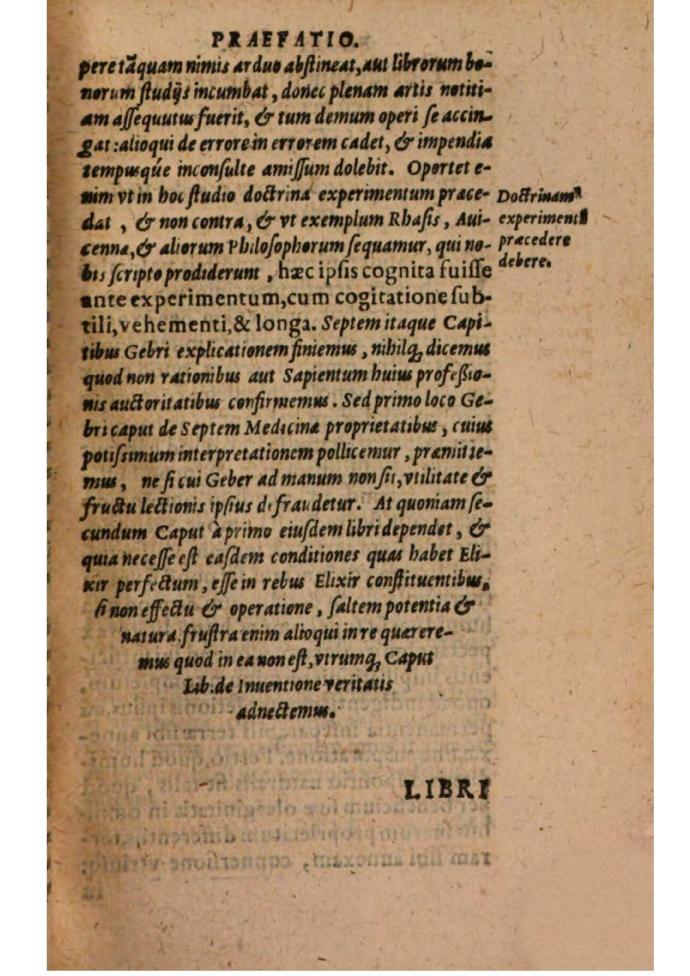 PRAEFATIO.
pere tāquam nimis arduo abſtineat, aut librorum bo-
norum ſtudijs incumbat, donec plenam artis notiti-
am aſſequutus fuerit, & tum demum operi ſe accin-
gat: alioqui de errore in errorem cadet, & impendia
tempusq́ue inconſulte amiſſum dolebit. Oportet e-
nim vt in hoc ſtudio doctrina experimentum præce-
dat, & non contra, & vt exemplum Rhaſis, Aui-
cennæ, & aliorum Philoſophorum ſequamur, qui no-
bis ſcripto prodiderunt, hæc ipſis cognita fuiſſe
ante experimentum, cum cogitatione ſub-
tili, vehementi, & longa. Septem itaque Capi-
tibus Gebri explicationem finiemus, nihilq; dicemus
quod non rationibus aut Sapientum huius profeßio-
nis auctoritatibus confirmemus. Sed primo loco Ge-
bri caput de Septem Medicinæ proprietatibus, cuius
potiſſimum interpretationem pollicemur, præmitte-
mus, ne ſi cui Geber ad manum non ſit, vtilitate &
fructu lectionis ipſius defraudetur. At quoniam ſe-
cundum Caput à primo eiuſdem libri dependet, &
quia neceſſe eſt eaſdem conditiones quas habet Eli-
xir perfectum, eſſe in rebus Elixir conſtituentibus,
ſi non effectu & operatione, ſaltem potentia &
natura. fruſtra enim alioqui in re quærere-
mus quod in ea non eſt, vtrumq; Caput
Lib. de Inuentione veritatis
adnectemus.
Doctrinam
experimentū
præcedere
debere.
LIBRI